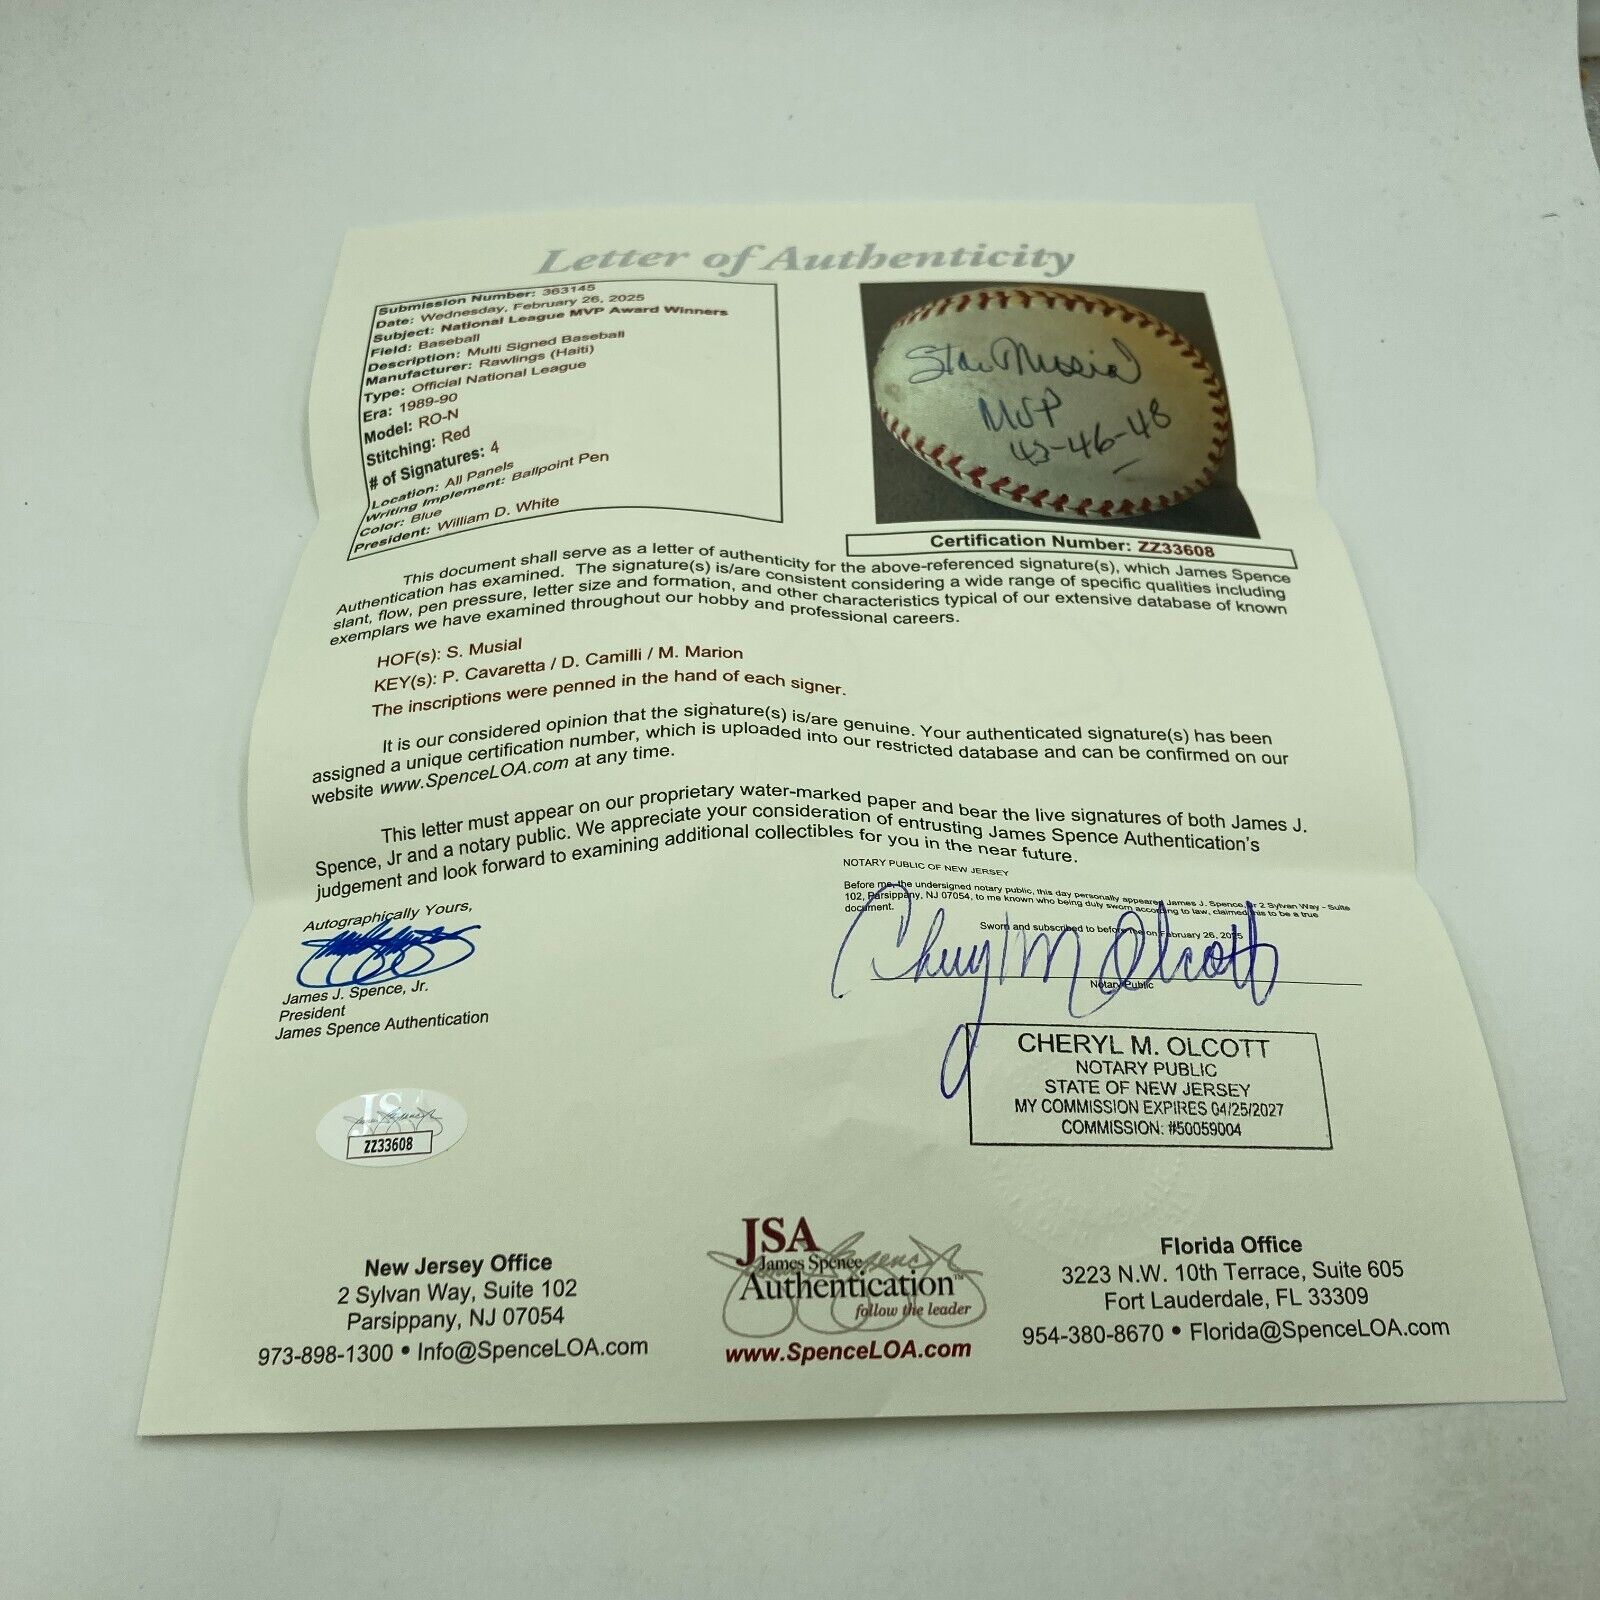 Letter of Authenticity
Submission Number: 363145
Date: Wednesday, February 26, 2025
Subject: National League MVP Award Winners
Field: Baseball
Description: Multi Signed Baseball
Manufacturer: Rawlings (Haiti)
Type: Official National League
Era: 1989-90
Model: RO-N
Stitching: Red
# of Signatures: 4
Location: All Panels
Writing Implement: Ballpoint Pen
Color: Blue
President: William D. White
Stan Musial
MVP
43-46-48
Certification Number: ZZ33608
This document shall serve as a letter of authenticity for the above-referenced signature(s), which James Spence
Authentication has examined. The signature(s) is/are consistent considering a wide range of specific qualities including
slant, flow, pen pressure, letter size and formation, and other characteristics typical of our extensive database of known
exemplars we have examined throughout our hobby and professional careers.
HOF(s): S. Musial
KEY(s): P. Cavaretta / D. Camilli / M. Marion
The inscriptions were penned in the hand of each signer.
It is our considered opinion that the signature(s) is/are genuine. Your authenticated signature(s) has been
assigned a unique certification number, which is uploaded into our restricted database and can be confirmed on our
website www.SpenceLOA.com at any time.
This letter must appear on our proprietary water-marked paper and bear the live signatures of both James J.
Spence, Jr and a notary public. We appreciate your consideration of entrusting James Spence Authentication's
judgement and look forward to examining additional collectibles for you in the near future.
NOTARY PUBLIC OF NEW JERSEY
Before me, the undersigned notary public, this day personally appeared James J. Spence, Jr 2 Sylvan Way - Suite
102, Parsippany, NJ 07054, to me known who being duly sworn according to law, claimed this to be a true
document.
Sworn and subscribed to before me on February 26, 2025
Cheryl M Olcott
Notary Public
Autographically Yours,
James J. Spence, Jr.
President
James Spence Authentication
CHERYL M. OLCOTT
NOTARY PUBLIC
STATE OF NEW JERSEY
MY COMMISSION EXPIRES 04/25/2027
COMMISSION: #50059004
JSA
ZZ33608
New Jersey Office
2 Sylvan Way, Suite 102
Parsippany, NJ 07054
973-898-1300 • Info@SpenceLOA.com
JSA
James Spence
Authentication™
follow the leader
www.SpenceLOA.com
Florida Office
3223 N.W. 10th Terrace, Suite 605
Fort Lauderdale, FL 33309
954-380-8670 • Florida@SpenceLOA.com